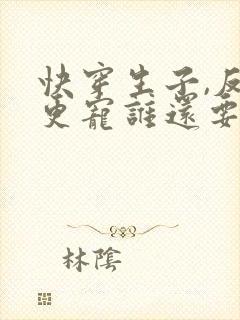 快穿生子,反
更寵誰還要
林陰